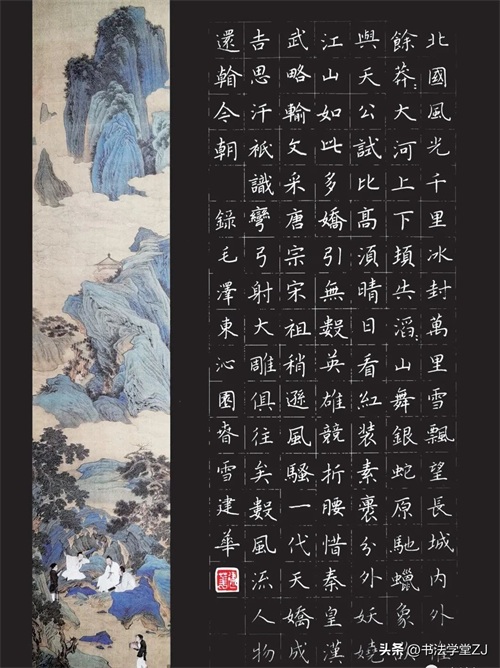 北國風光千里冰封萬里雪飄望長城內外惟
餘莽〻大河上下頓失滔〻山舞銀蛇原馳蠟象
與天公試比高須晴日看紅装素裹分外妖嬈
江山如此多嬌引無數英雄競折腰惜秦皇漢
武略輸文采唐宗宋祖稍遜風騷一代天嬌成
吉思汗祇識彎弓射大雕俱往矣數風流人物
還看今朝 録毛澤東沁園春雪建華
头条 @书法学堂ZJ